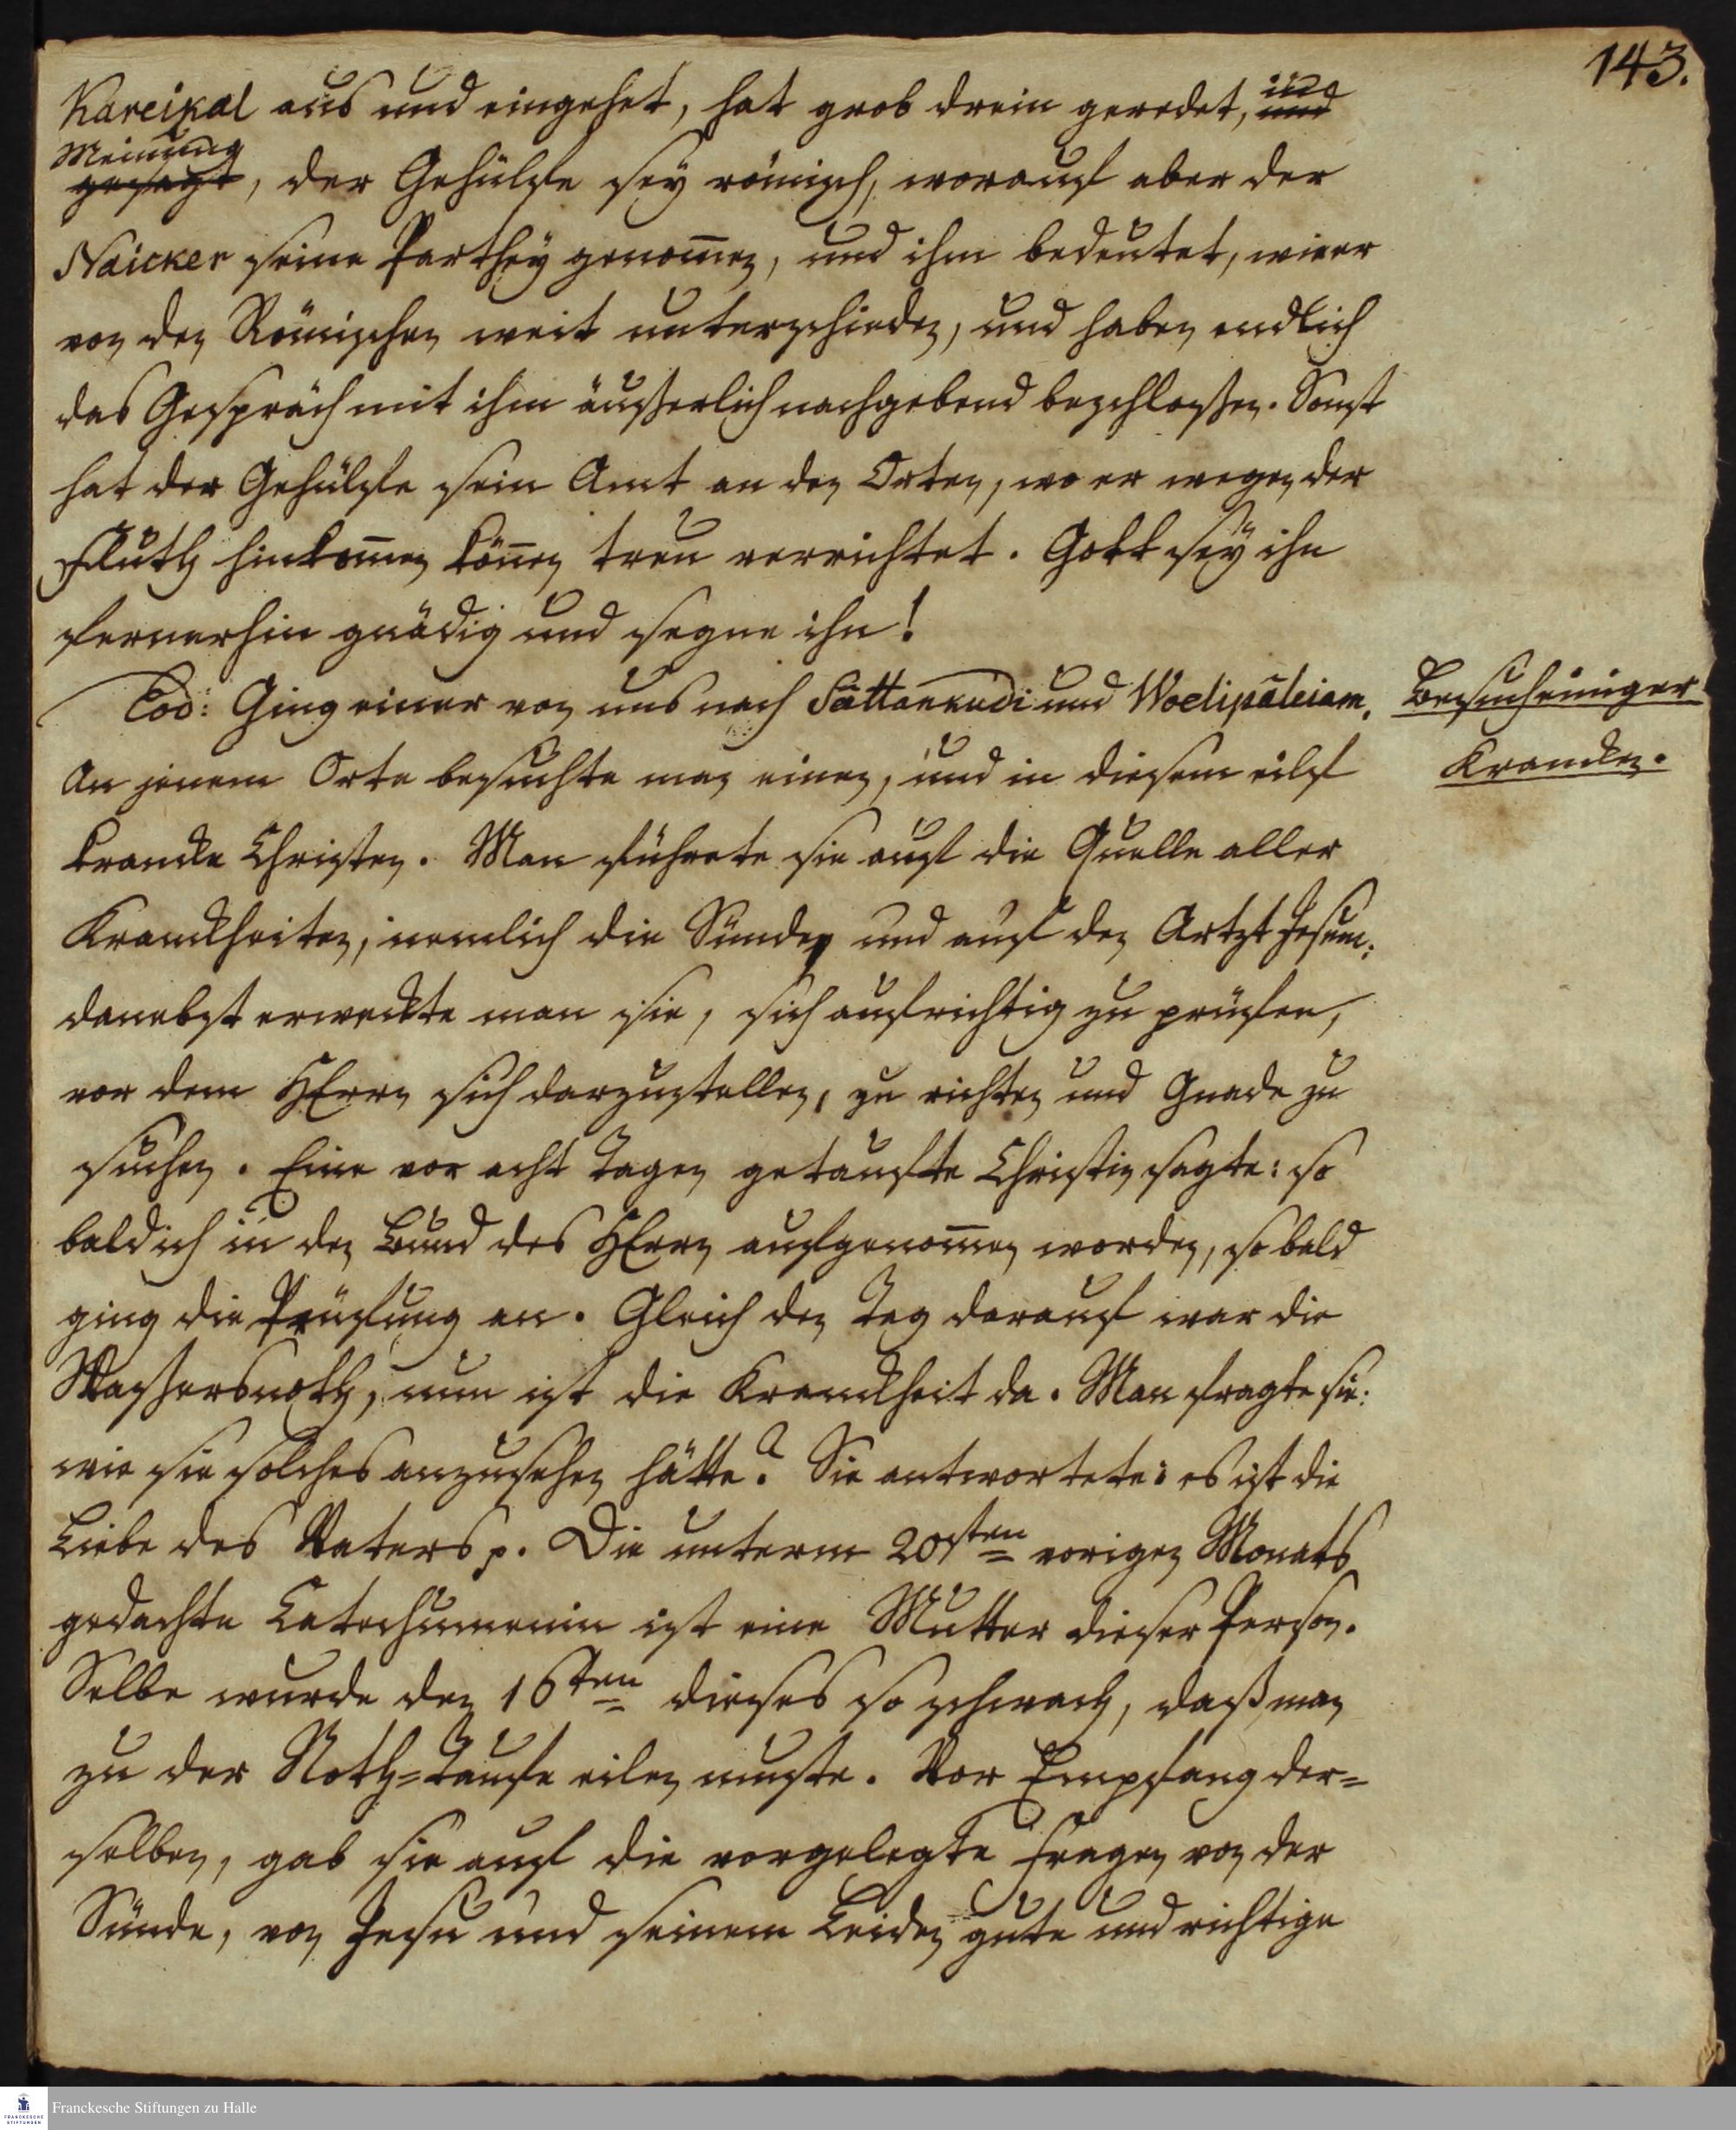 143.
Kareikal aus und eingehet, hat grob drein geredet, und in d
Meinung
gesagt, der Gehülfe sey römisch, worauf aber der
Naicker seine Parthey genom̅en, und ihm bedeutet, wie er
von den Römischen weit unterschieden, und haben endlich
das Gespräch mit ihm äußerlich nachgebend beschloßen. Sonst
hat der Gehülfe sein Amt an den Orten, wo er wegen der
Fluth hinkom̅en kön̅en treu verrichtet. Gott sey ihm
fernerhin gnädig und segne ihn!
Eod: Ging einer von uns nach Sāttankudi und Woelipāleiam.
An jenem Orte besuchte man einen, und in diesem eilf
krancke Christen. Man führete sie auf die Quelle aller
Kranckheiten, nemlich die Sünde, und auf den Artzt Jesum;
danebst erweckte man sie, sich aufrichtig zu prüfen,
vor dem HErrn sich darzustellen, zu richten und Gnade zu
suchen. Eine vor acht Tagen getaufte Christin sagte: so
bald ich in den Bund des HErrn aufgenom̅en worden, so bald
ging die Prüfung an. Gleich den Tag darauf war die
Waßersnoth, nun ist die Kranckheit da. Man fragte sie:
wie sie solches anzusehen hätte? Sie antwortete: es ist die
Liebe des Vaters p. Die unterm 20sten vorigen Monats
gedachte Catechumenin ist eine Mutter dieser Person.
Selbe wurde den 16ten dieses so schwach, daß man
zu der Noth=Taufe eilen muste. Vor Empfang der=
selben, gab sie auf die vorgelegte Fragen von der
Sünde, von Jesu und seinem Leiden gute und richtige
Besuch einiger
Krancken.
Franckesche Stiftungen zu Halle
FRANCKESCHE
STIFTUNGEN